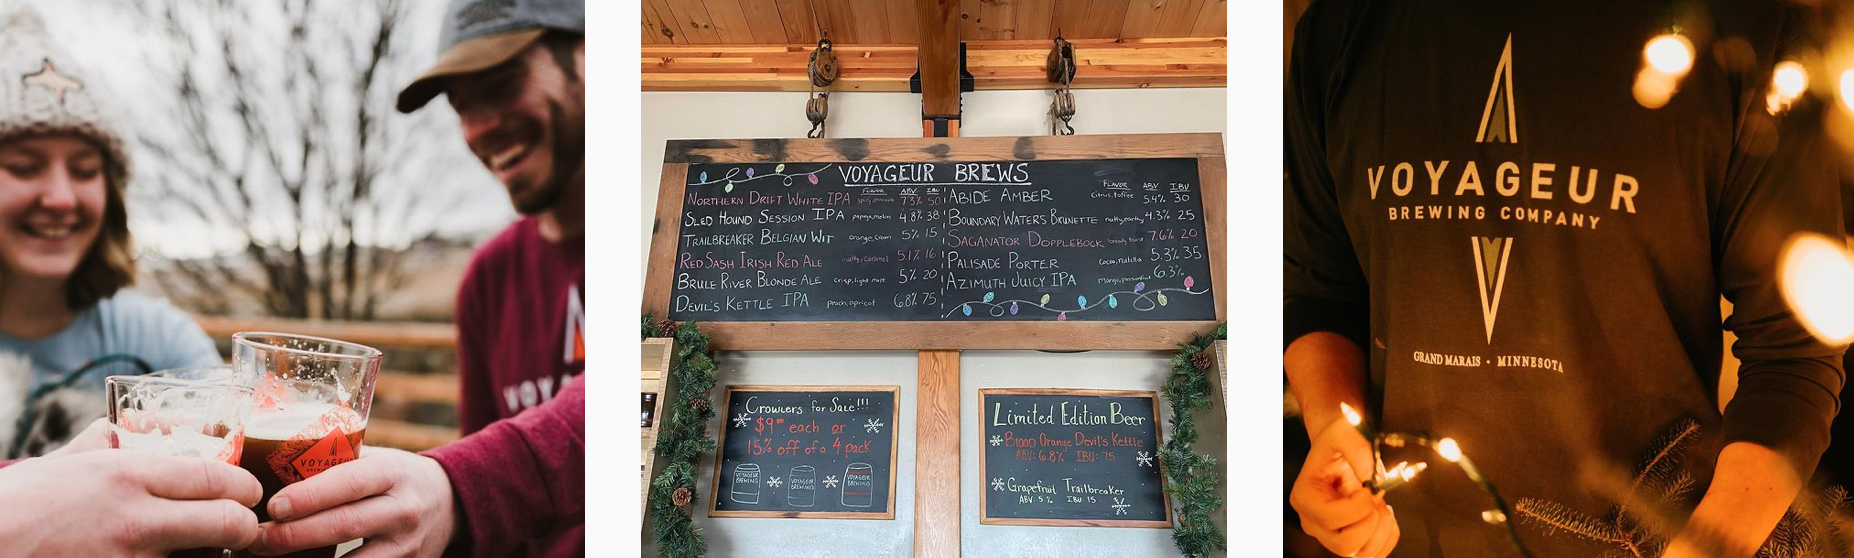 VOYAGEUR
VOYAGEUR BREWS
FLAVOR ABV IBU
NORTHERN DRIFT WHITE IPA 7.3% 50
SLED HOUND SESSION IPA papaya, melon 4.8% 38
TRAILBREAKER BELGIAN WIT orange, cream 5% 15
RED SASH IRISH RED ALE nutty, caramel 5.1% 16
BRULE RIVER BLONDE ALE crisp, light malt 5% 20
DEVIL'S KETTLE IPA peach, apricot 6.8% 75
FLAVOR ABV IBU
ABIDE AMBER Citrus, toffee 5.4% 30
BOUNDARY WATERS BRUNETTE nutty, earthy 4.3% 25
SAGANATOR DOPPLEBOCK 7.6% 20
PALISADE PORTER Cocoa, Nutella 5.3% 35
AZIMUTH JUICY IPA mango, 6.3%
Crowlers for Sale!!!
$9.00 each or
15% off of a 4 pack
VOYAGEUR BREWING
VOYAGEUR BREWING
VOYAGEUR BREWING
Limited Edition Beer
Blood Orange Devil's Kettle
ABV: 6.8% IBU: 75
Grapefruit Trailbreaker
ABV: 5% IBU: 15
VOYAGEUR
BREWING COMPANY
GRAND MARAIS • MINNESOTA